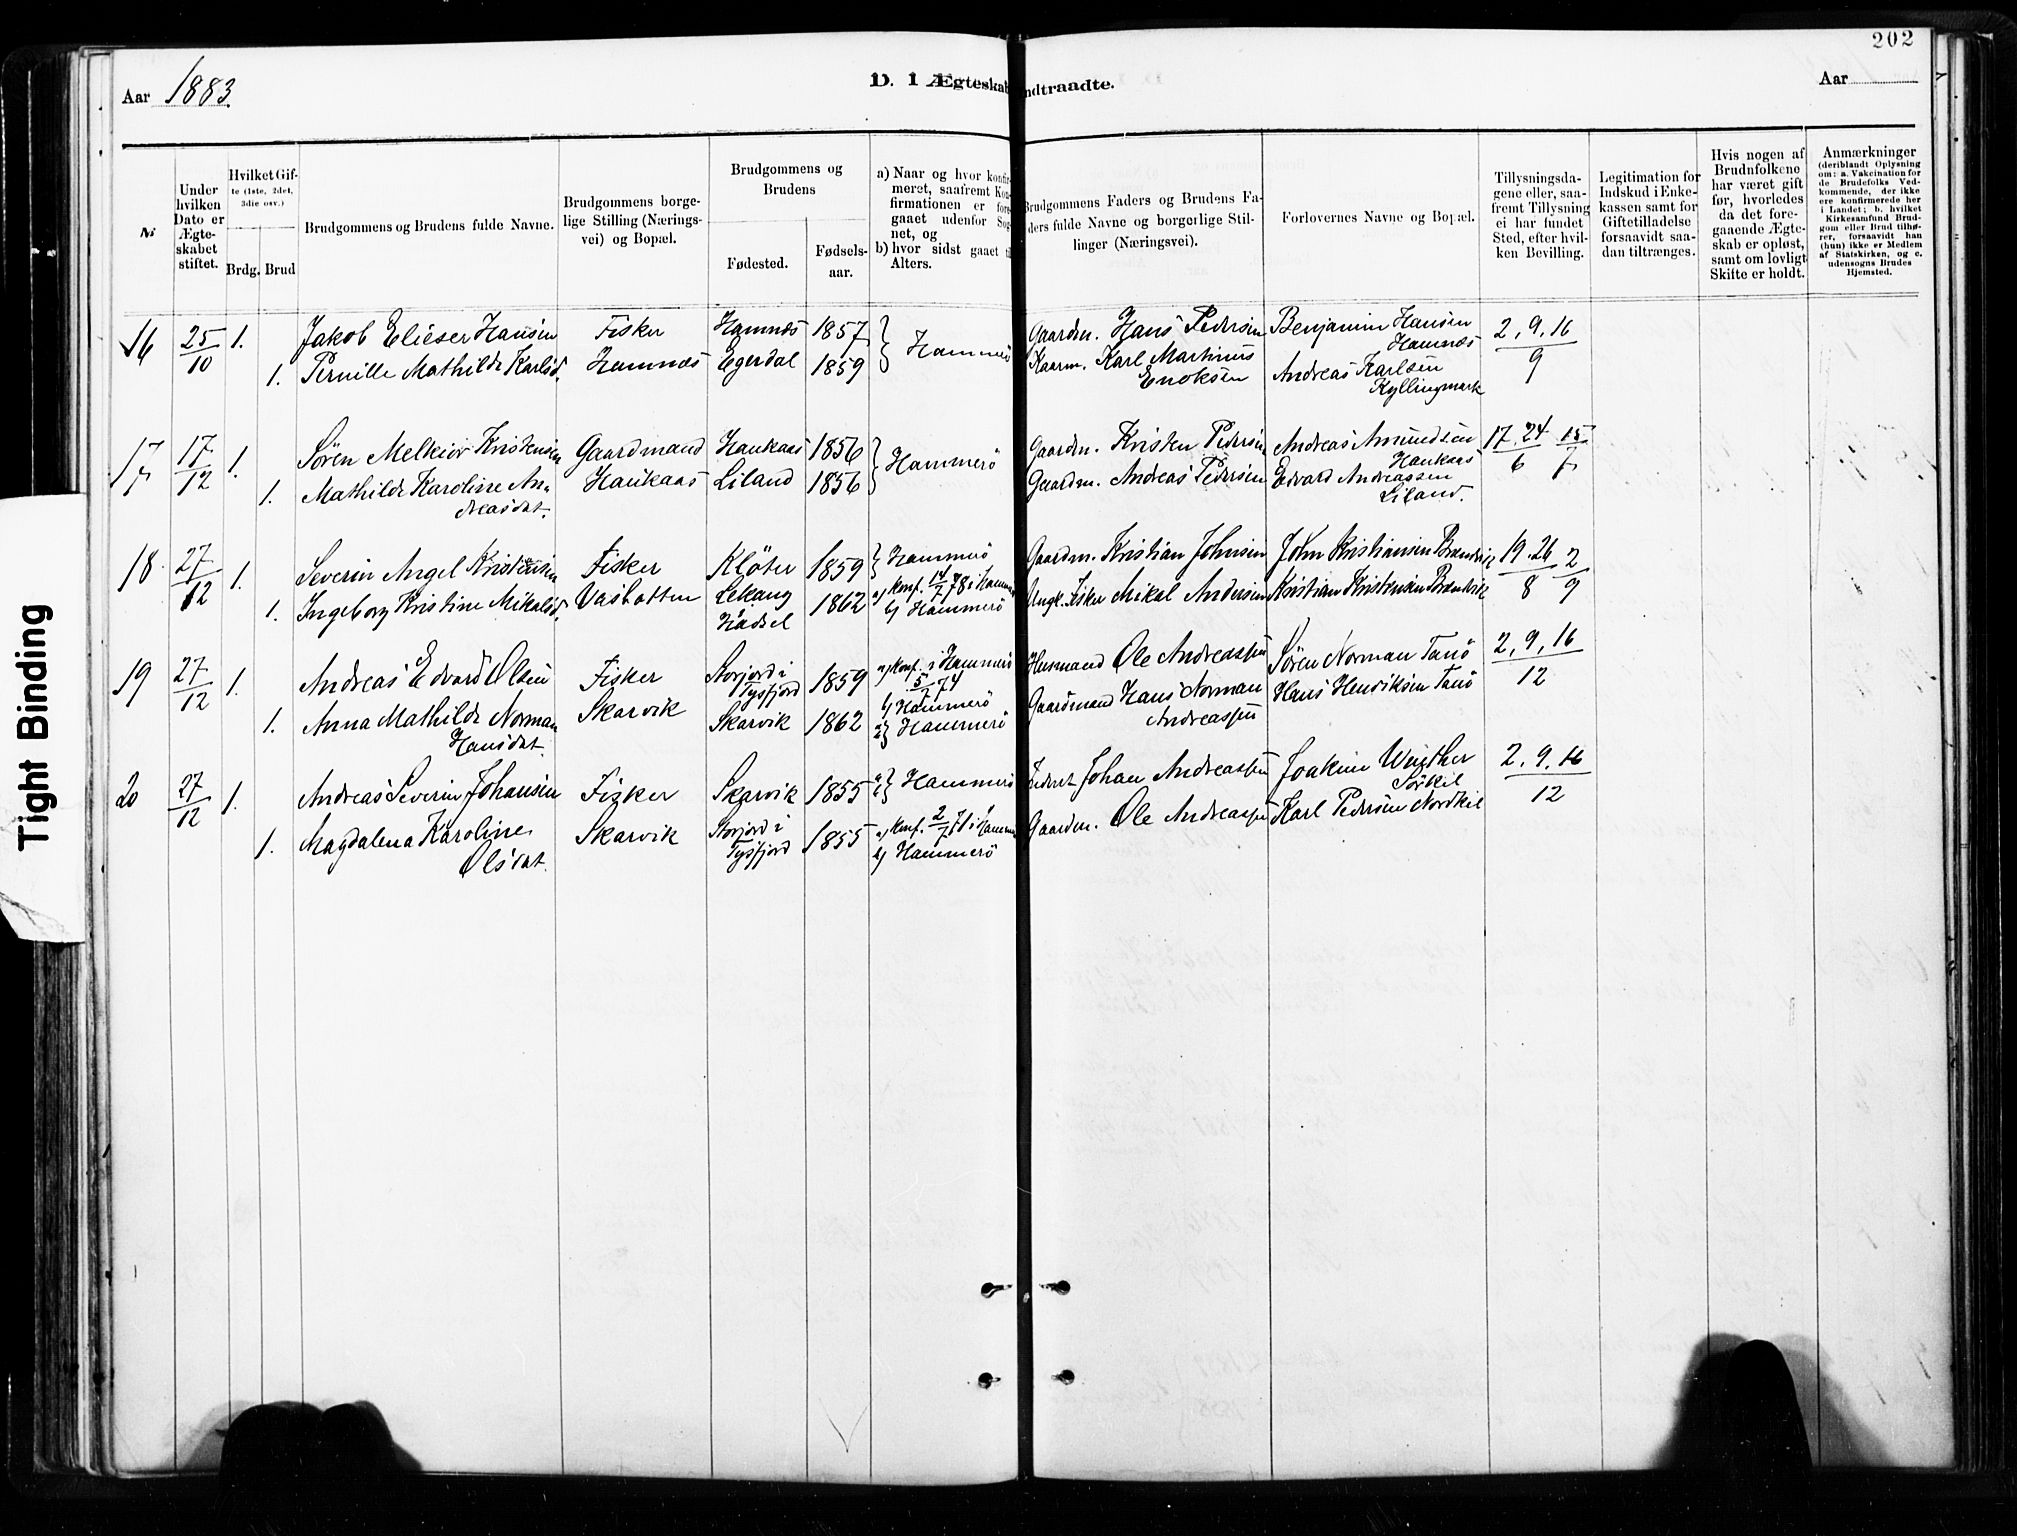 202
Aar 1883.
D. I Ægteskab Indtraadte.
Aar
№
Under hvilken Dato er Ægte-skabet stiftet.
Hvilket Gif-te (1ste, 2det, 3die osv.)
Brdg. Brud
Brudgommens og Brudens fulde Navne.
Brudgommens borge-lige Stilling (Nærings-vei) og Bopæl.
Brudgommens og Brudens
Fødested.
Fødsels-aar.
a) Naar og hvor konfir-meret, saafremt Kon-firmationen er fore-gaaet udenfor Sog-net, og
b) hvor sidst gaaet til Alters.
Brudgommens Faders og Brudens Fa-ders fulde Navne og borgerlige Stil-linger (Næringsvei).
Forlovernes Navne og Bopæl.
Tillysningsda-gene eller, saa-fremt Tillysning ei har fundet Sted, efter hvil-ken Bevilling.
Legitimation for Indskud i Enke-kassen samt for Giftetilladelse forsaavidt saa-dan tiltrænges.
Hvis nogen af Brudnfolkene har været gift før, hvorledes da det fore-gaaende Ægte-skab er opløst, samt om lovligt Skifte er holdt.
Anmærkninger
(deriblandt Oplysning om: a. Vakcination for de Brudefolks Ved-kommende, der ikke ere konfirmerede her i Landet; b. hvilket Kirkesamfund Brud-gom eller Brud tilhø-rer, forsaavidt han (hun) ikke er Medlem af Statskirken, og c. udensogns Brudes Hjemsted.
16 25/10 1. Jakob Elieser Hansen Fisker Hamnæs 1857 Hammerö Gaardm. Hans Pedersen Benjamin Hansen Hamnæs 2, 9, 16/9
1. Pernille Mathilde Karlsd. Hamnæs Egerdal 1859 Karl Martinus Enoksen Andreas Karlsen Kyllingmark
17 17/12 1. Søren Melkior Kristensen Gaardmand Haukaas 1856 Hammerö Gaardm. Kristen Pedersen Andreas Amundsen Haukaas 17 24/6 15/7
1. Mathilde Karoline An-dreasdat. Haukaas Liland 1856 Gaardm. Andreas Pedersen Edvard Andreassen Liland.
18. 27/12 1. Severin Angel Kristensen Fisker Klöter 1859 Hammerö Gaardm. Kristian Johnsen John Kristiansen 19. 26/8 2/9
1. Ingeborg Kristine Mikalsd. Vasbotten Lekang Hadsel 1862 a) Konf. 14/7 78 i Hammerö b) Hammerö Ungk. Fisker Mikal Andersen Kristian Kristensen
19 27/12 1. Andreas Edvard Olsen Fisker Storjord i Tysfjord 1859 a) Konf. i Hammerö 5/7 74 b) Hammerö Husmand Ole Andreassen Søren Norman Tanö 2, 9, 16/12
1. Anna Mathilde Norman Hansdat. Skarvik Skarvik 1862 Hammerö Gaardmand Hans Norman Andreassen Hans Henriksen Tanö
20 27/12 1. Andreas Severin Johansen Fisker Skarvik 1855 Hammerö Johan Andreassen Joakim Winther Sörkil 2, 9, 16/12
1. Magdalena Karoline Olsdat. Skarvik Storjord i Tysfjord 1855 a) Konf. 2/7 71 i Hammerö b) Hammerö Gaardm. Ole Andreassen Karl Pedersen Nordkil
Tight Binding